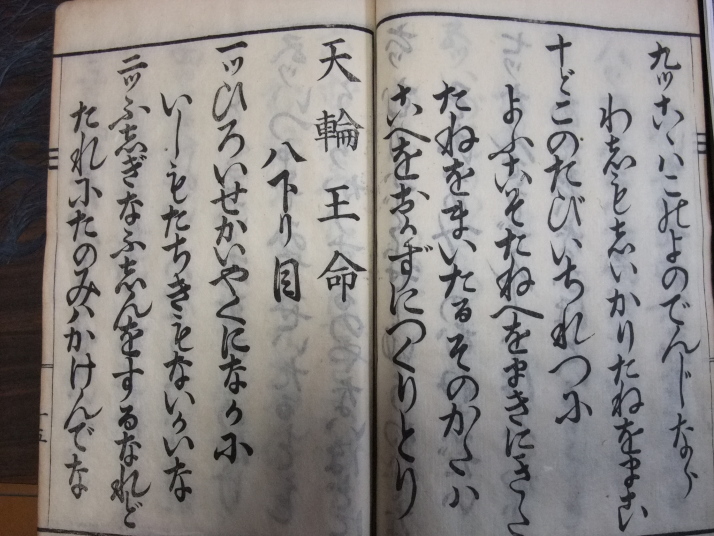 九ツこゝハこのよのでんじなら
わしもしいかりたねをまこい
十ドこのたびいちれつに
よふこそたねへをまきにきた
たねをまいたるそのかたハ
こへをおかずにつくりとり
天輪王命
八下り目
一ツひろいせかいやくになかに
いしもたちきもないかいな
二ツふしぎなふしんをするなれど
たれにたのみハかけんでな
十五